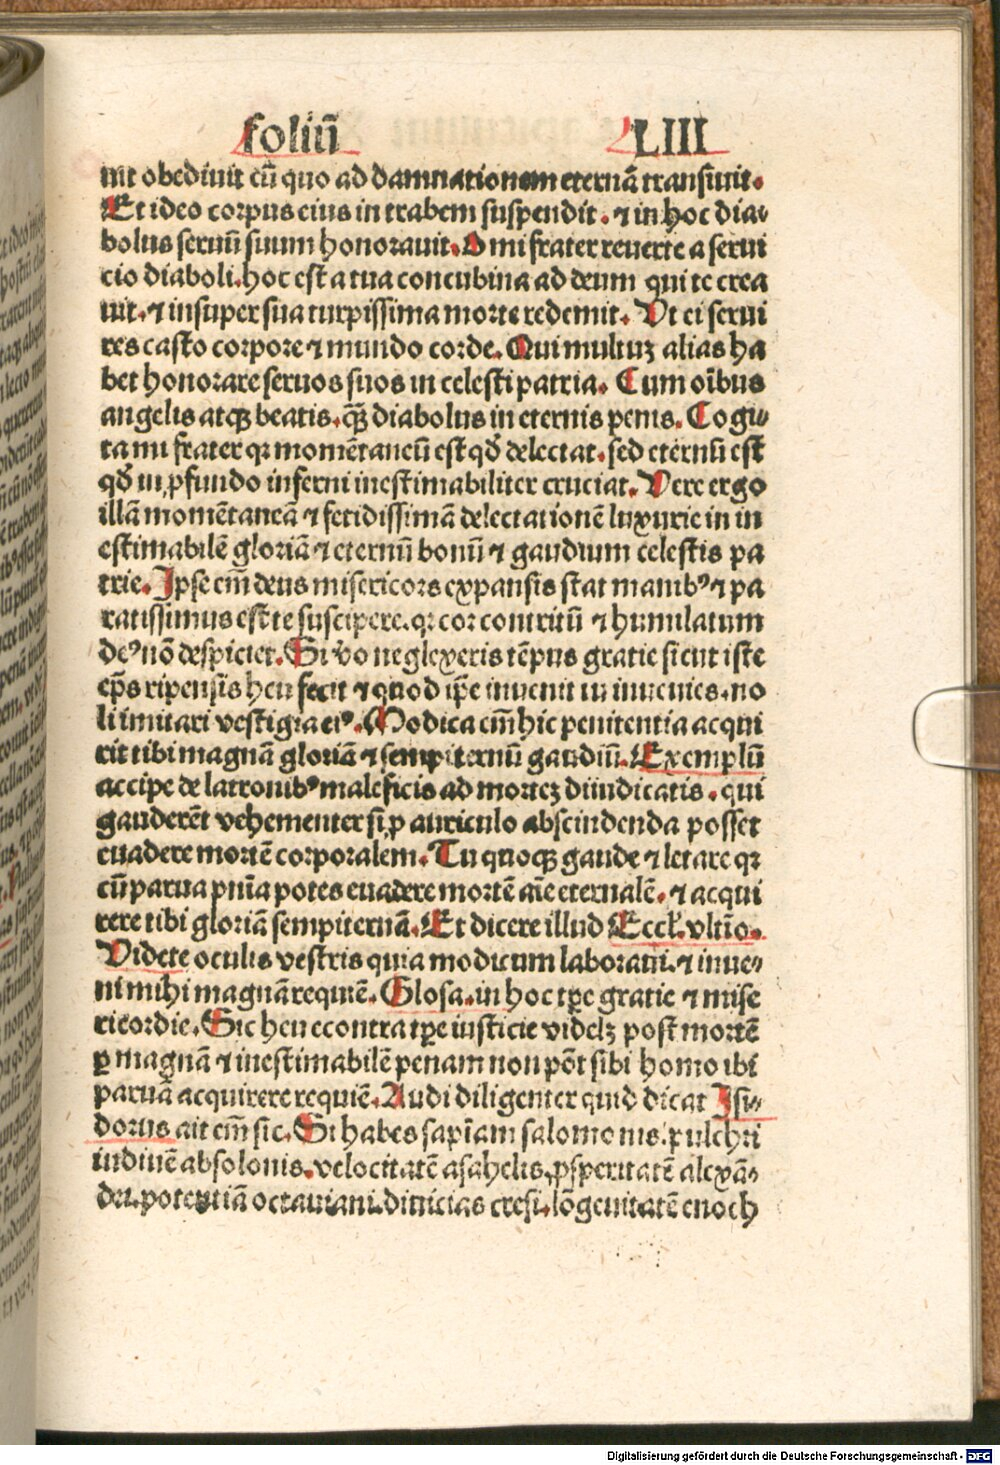 foliū LIII
nit obediuit cū quo ad damnationem eternā transiuit.
Et ideo corpus eius in trabem suspendit. ⁊ in hoc dia⸗
bolus seruū suum honorauit. O mi frater reuerte a serui
cio diaboli. hoc est a tua concubina ad deum qui te crea
uit. ⁊ insuper sua turpissima morte redemit. Ut ei serui
res casto corpore ⁊ mundo corde. Qui multuꝫ alias ha
bet honorare seruos suos in celesti patria. Cum oībus
angelis atqꝫ beatis. qꝫ̄ diabolus in eternis penis. Cogi⸗
ta mi frater qꝛ momētaneū est qð delectat. sed eternū est
qð in ꝓfundo inferni inestimabiliter cruciat. Vere ergo
illā momētaneā ⁊ fetidissimā delectationē luxurie in in
estimabilē gloriā ⁊ eternū bonū ⁊ gaudium celestis pa
trie. Ipse em̄ deus misericors expansis stat manibꝰ ⁊ pa
ratissimus est te suscipere. qꝛ cor contritū ⁊ humilatum
deꝰ nō despiciet. Si v̄o neglexeris tēpus gratie sicut iste
ep̄s ripensis heu fecit ⁊ quod ip̄e inuenit tu inuenies. no
li imitari vestigia eiꝰ. Modica em̄ hic penitentia acqui
rit tibi magnā gloriā ⁊ sempiternū gaudiū. Exemplū
accipe de latronibꝰ maleficis ad morteꝫ diiudicatis. qui
gauderēt vehementer si ꝓ auriculo abscindenda posset
euadere mortē corporalem. Tu quoqꝫ gaude ⁊ letare qꝛ
cū parua pn̄ia potes euadere mortē aīe eternalē. ⁊ acqui
rere tibi gloriā sempiternā. Et dicere illud Eccl̄. vltīo.
Videte oculis vestris quia modicum laboraui. ⁊ inue⸗
ni mihi magnā requiē. Glosa. in hoc tp̄e gratie ⁊ mise
ricordie. Sic heu econtra tp̄e iusticie videlꝫ post mortē
ꝑ magnā ⁊ inestimabilē penam non pōt sibi homo ibi
paruā acquirere requiē. Audi diligenter quid dicat Isi⸗
dorus ait em̄ sic. Si habes sapīam salomonis. pulchri
tudinē absolonis. velocitatē asahelis. ꝓsperitatē alexā⸗
dri. potentiā octauiani. diuicias cresi. lōgeuitatē enoch
Digitalisierung gefördert durch die Deutsche Forschungsgemeinschaft - DFG